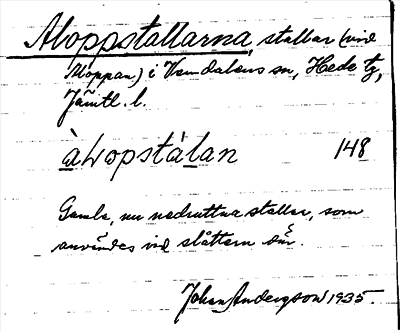 Aloppstallarna, stallar (vid
Aloppan) i Vemdalens sn, Hede tg,
Jämtl. l.
àLopstálan 148
Gamla, nu nedruttna stallar, som
användes vid slåttern där.
Johan Anderson 1935.